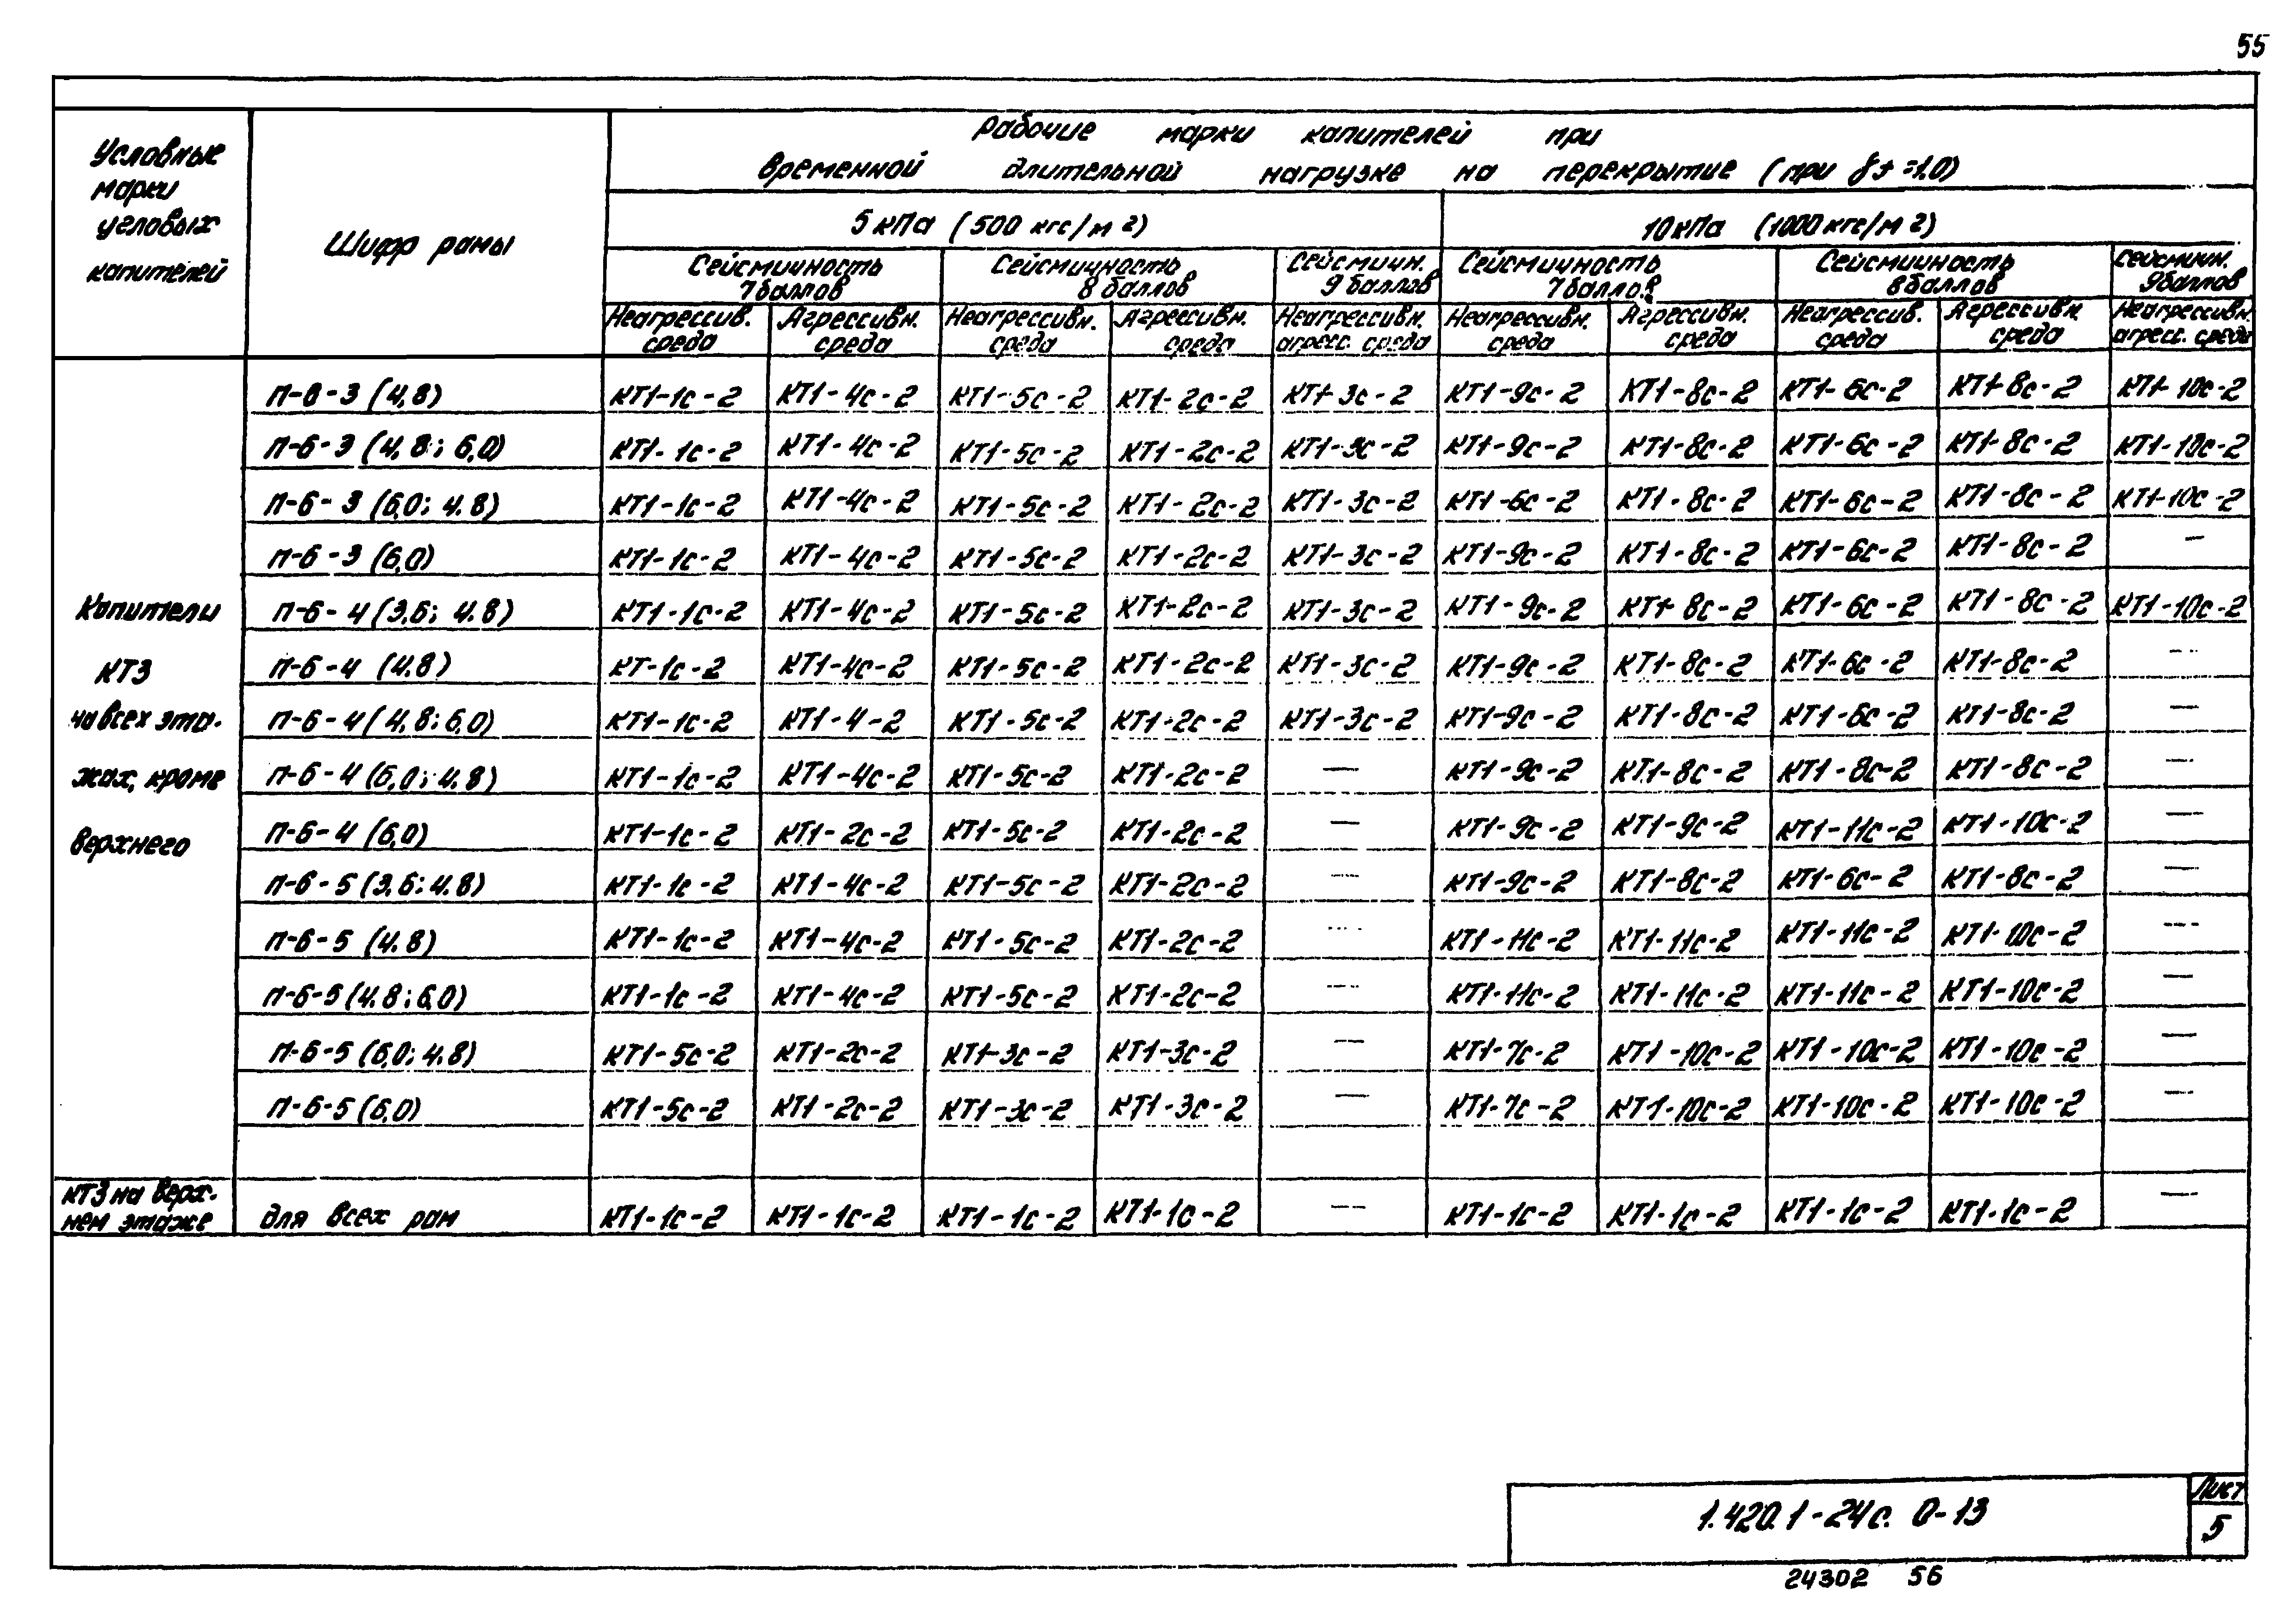 55
Условные марки угловых капителей
Шифр рамы
Рабочие марки капителей при
временной длительной нагрузке на перекрытие (при γf =1.0)
5 кПа (500 кгс/м2)
10 кПа (1000 кгс/м2)
Сейсмичность 7 баллов
Сейсмичность 8 баллов
Сейсмичн. 9 баллов
Сейсмичность 7 баллов
Сейсмичность 8 баллов
Сейсмичн. 9 баллов
Неагрессив. среда
Агрессивн. среда
Неагрессивн. среда
Агрессивн. среда
Неагрессивн. агресс. среда
Неагрессивн. среда
Агрессивн. среда
Неагрессив. среда
Агрессивн. среда
Неагрессивн. агресс. среда
П-6-3 (4,8) КТ1-1с-2 КТ1-4с-2 КТ1-5с-2 КТ1-2с-2 КТ1-3с-2 КТ1-9с-2 КТ1-8с-2 КТ1-6с-2 КТ1-8с-2 КТ1-10с-2
П-6-3 (4,8; 6,0) КТ1-1с-2 КТ1-4с-2 КТ1-5с-2 КТ1-2с-2 КТ1-3с-2 КТ1-9с-2 КТ1-8с-2 КТ1-6с-2 КТ1-8с-2 КТ1-10с-2
П-6-3 (6,0; 4.8) КТ1-1с-2 КТ1-4с-2 КТ1-5с-2 КТ1-2с-2 КТ1-3с-2 КТ1-6с-2 КТ1-8с-2 КТ1-6с-2 КТ1-8с-2 КТ1-10с-2
П-6-3 (6,0) КТ1-1с-2 КТ1-4с-2 КТ1-5с-2 КТ1-2с-2 КТ1-3с-2 КТ1-9с-2 КТ1-8с-2 КТ1-6с-2 КТ1-8с-2 —
Капители
П-6-4 (3,6; 4.8) КТ1-1с-2 КТ1-4с-2 КТ1-5с-2 КТ1-2с-2 КТ1-3с-2 КТ1-9с-2 КТ1-8с-2 КТ1-6с-2 КТ1-8с-2 КТ1-10с-2
КТ3
П-6-4 (4.8) КТ-1с-2 КТ1-4с-2 КТ1-5с-2 КТ1-2с-2 КТ1-3с-2 КТ1-9с-2 КТ1-8с-2 КТ1-6с-2 КТ1-8с-2 —
на всех эта-
П-6-4 (4,8; 6,0) КТ1-1с-2 КТ1-4-2 КТ1-5с-2 КТ1-2с-2 КТ1-3с-2 КТ1-9с-2 КТ1-8с-2 КТ1-6с-2 КТ1-8с-2 —
жах, кроме
П-6-4 (6,0; 4.8) КТ1-1с-2 КТ1-4с-2 КТ1-5с-2 КТ1-2с-2 — КТ1-9с-2 КТ1-8с-2 КТ1-8с-2 КТ1-8с-2 —
верхнего
П-6-4 (6,0) КТ1-1с-2 КТ1-2с-2 КТ1-5с-2 КТ1-2с-2 — КТ1-9с-2 КТ1-9с-2 КТ1-11с-2 КТ1-10с-2 —
П-6-5 (3,6; 4.8) КТ1-1с-2 КТ1-4с-2 КТ1-5с-2 КТ1-2с-2 — КТ1-9с-2 КТ1-8с-2 КТ1-6с-2 КТ1-8с-2 —
П-6-5 (4.8) КТ1-1с-2 КТ1-4с-2 КТ1-5с-2 КТ1-2с-2 — КТ1-11с-2 КТ1-11с-2 КТ1-11с-2 КТ1-10с-2 —
П-6-5 (4.8; 6,0) КТ1-1с-2 КТ1-4с-2 КТ1-5с-2 КТ1-2с-2 — КТ1-11с-2 КТ1-11с-2 КТ1-11с-2 КТ1-10с-2 —
П-6-5 (6,0; 4.8) КТ1-5с-2 КТ1-2с-2 КТ1-3с-2 КТ1-3с-2 — КТ1-7с-2 КТ1-10с-2 КТ1-10с-2 КТ1-10с-2 —
П-6-5 (6,0) КТ1-5с-2 КТ1-2с-2 КТ1-3с-2 КТ1-3с-2 — КТ1-7с-2 КТ1-10с-2 КТ1-10с-2 КТ1-10с-2 —
КТ3 на верх-
нем этаже
для всех рам КТ1-1с-2 КТ1-1с-2 КТ1-1с-2 КТ1-1с-2 — КТ1-1с-2 КТ1-1с-2 КТ1-1с-2 КТ1-1с-2 —
1.420.1-24с. 0-13
Лист
5
24302 56